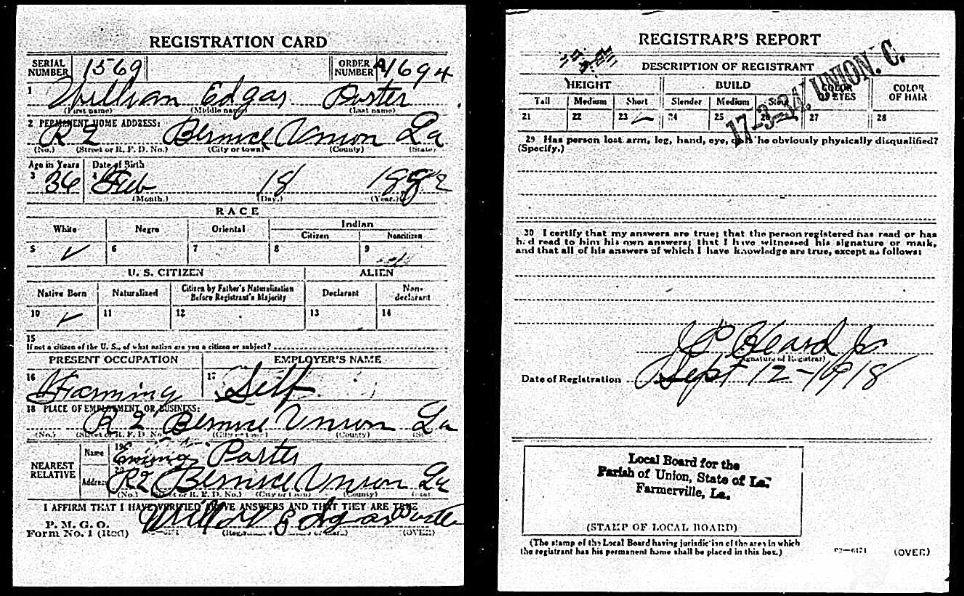 REGISTRATION CARD
SERIAL NUMBER 1569 ORDER NUMBER A1694
1 William Edgar Porter
(First name) (Middle name) (Last name)
2 PERMANENT HOME ADDRESS:
R2 Bernice Union La
(No.) (Street or R. F. D. No.) (City or town) (County) (State)
Age in Years Date of Birth
3 36 4 Feb 18 1882
(Month.) (Day.) (Year.)
RACE
White Negro Oriental Indian
Citizen Noncitizen
5 ✓ 6 7 8 9
U. S. CITIZEN ALIEN
Native Born Naturalized Citizen by Father's Naturalization Before Registrant's Majority Declarant Non-declarant
10 ✓ 11 12 13 14
15
If not a citizen of the U. S., of what nation are you a citizen or subject?
PRESENT OCCUPATION EMPLOYER'S NAME
16 Farming 17 Self
18 PLACE OF EMPLOYMENT OR BUSINESS:
R2 Bernice Union La
(No.) (Street or R. F. D. No.) (City or town) (County) (State)
NEAREST RELATIVE Name 19 Porter
Address 20 R2 Bernice Union La
(No.) (Street or R. F. D. No.) (City or town) (County) (State)
I AFFIRM THAT I HAVE VERIFIED ABOVE ANSWERS AND THAT THEY ARE TRUE
P. M. G. O.
Form No. 1 (Red) William Edgar Porter
(OVER)
REGISTRAR'S REPORT
DESCRIPTION OF REGISTRANT
HEIGHT BUILD COLOR OF EYES COLOR OF HAIR
Tall Medium Short Slender Medium Stout
21 22 23 ✓ 24 25 26 27 28
17-3-34. UNION. C.
29 Has person lost arm, leg, hand, eye, or is he obviously physically disqualified?
(Specify.)
30 I certify that my answers are true; that the person registered has read or has
had read to him his own answers; that I have witnessed his signature or mark,
and that all of his answers of which I have knowledge are true, except as follows:
J P Heard Jr
(Signature of Registrar)
Date of Registration Sept 12-1918
Local Board for the
Parish of Union, State of La.
Farmerville, La.
(STAMP OF LOCAL BOARD)
(The stamp of the Local Board having jurisdiction of the area in which
the registrant has his permanent home shall be placed in this box.)
(OVER)